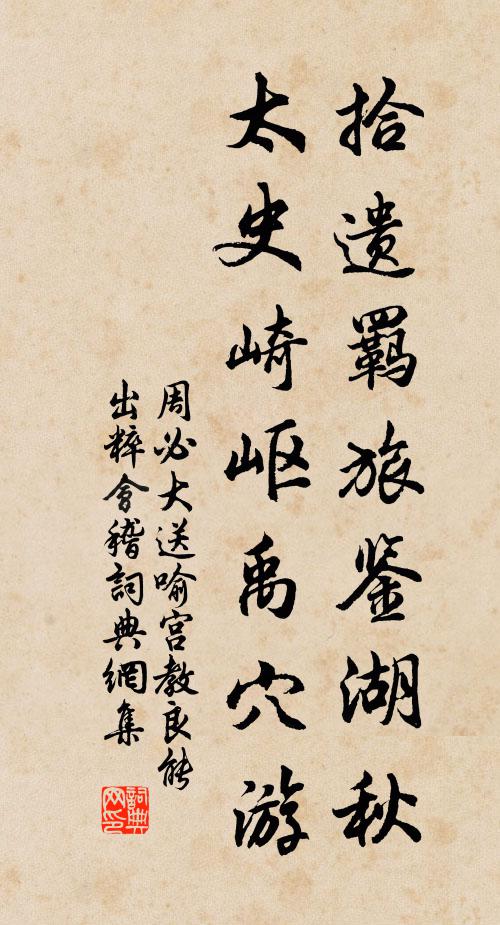 拾遺羈旅鉴湖秋
太史崎岖禹穴游
周必大送喻宫教良能
出粹會稽詞典網集
詞典網印